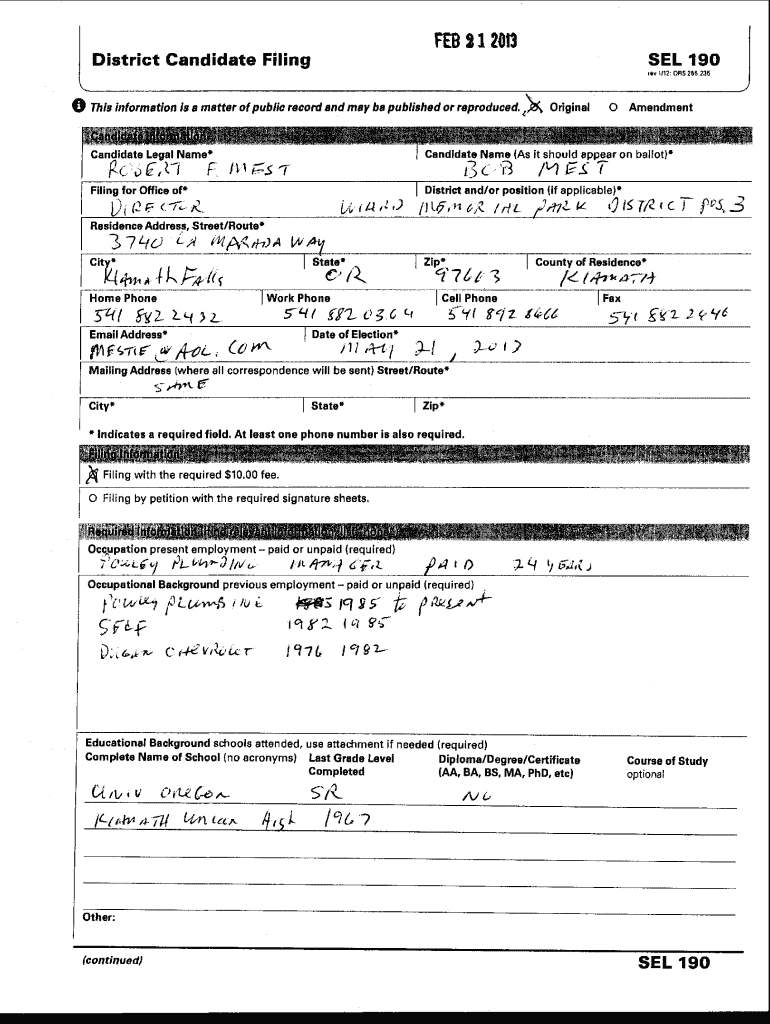 FEB 21 2013
District Candidate Filing SEL 190
rev 1/12: ORS 255.235
This information is a matter of public record and may be published or reproduced. Original Amendment
Candidate Information
Candidate Legal Name* Candidate Name (As it should appear on ballot)*
ROBERT F. MEST BOB MEST
Filing for Office of* District and/or position (if applicable)*
DIRECTOR WIARD MEMORIAL PARK DISTRICT POS. 3
Residence Address, Street/Route*
3740 LA MARADA WAY
City* State* Zip* County of Residence*
Klamath Falls OR 97603 KlAMATH
Home Phone Work Phone Cell Phone Fax
541 882 2432 541 882 0364 541 892 8666 541 882 2846
Email Address* Date of Election*
MESTIE @ AOL. COM MAY 21, 2013
Mailing Address (where all correspondence will be sent) Street/Route*
SAME
City* State* Zip*
* Indicates a required field. At least one phone number is also required.
Filing Information
Filing with the required $10.00 fee.
Filing by petition with the required signature sheets.
Required Information
Occupation present employment – paid or unpaid (required)
POWLEY PLUMBING MANAGER PAID 24 YEARS
Occupational Background previous employment – paid or unpaid (required)
POWLEY PLUMBING 1985 to present
SELF 1982 1985
DUGAN CHEVROLET 1976 1982
Educational Background schools attended, use attachment if needed (required)
Complete Name of School (no acronyms) Last Grade Level Diploma/Degree/Certificate Course of Study
Completed (AA, BA, BS, MA, PhD, etc) optional
UNIV OREGON SR NO
KlAMATH UNION High 1967
Other:
(continued) SEL 190